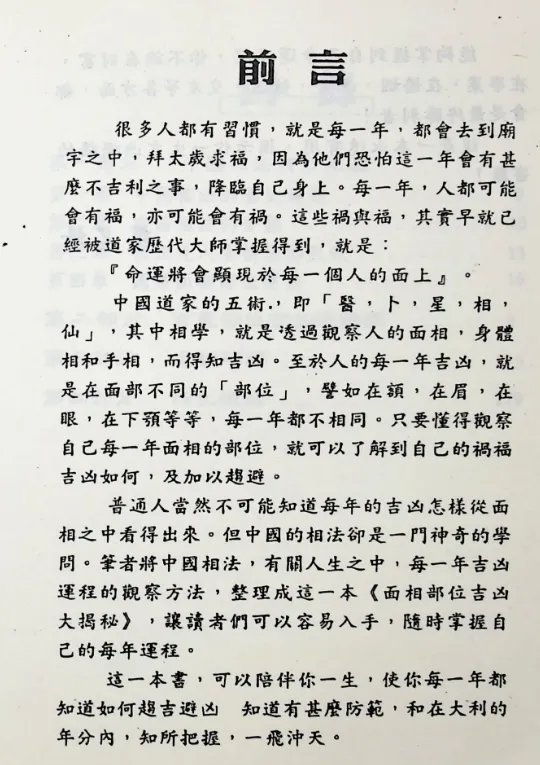 前言
很多人都有習慣，就是每一年，都會去到廟
宇之中，拜太歲求福，因為他們恐怕這一年會有甚
麼不吉利之事，降臨自己身上。每一年，人都可能
會有福，亦可能會有禍。這些禍與福，其實早就已
經被道家歷代大師掌握得到，就是：
『命運將會顯現於每一個人的面上』。
中國道家的五術，即「醫，卜，星，相，
仙」，其中相學，就是透過觀察人的面相，身體
相和手相，而得知吉凶。至於人的每一年吉凶，就
是在面部不同的「部位」，譬如在額，在眉，在
眼，在下顎等等，每一年都不相同。只要懂得觀察
自己每一年面相的部位，就可以了解到自己的禍福
吉凶如何，及加以趨避。
普通人當然不可能知道每年的吉凶怎樣從面
相之中看得出來。但中國的相法卻是一門神奇的學
問。筆者將中國相法，有關人生之中，每一年吉凶
運程的觀察方法，整理成這一本《面相部位吉凶
大揭秘》，讓讀者們可以容易入手，隨時掌握自
己的每年運程。
這一本書，可以陪伴你一生，使你每一年都
知道如何趨吉避凶　知道有甚麼防範，和在大利的
年分內，知所把握，一飛沖天。